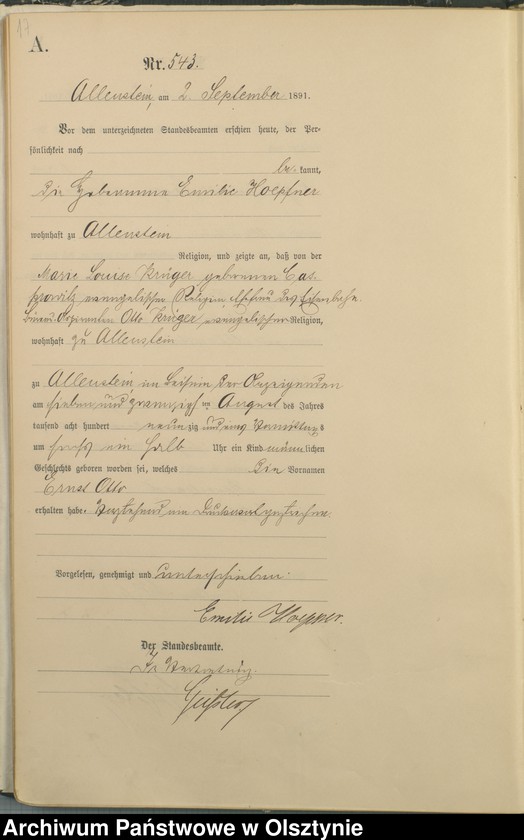 17
A.
Nr. 543.
Allenstein, am 2. September 1891.
Vor dem unterzeichneten Standesbeamten erschien heute, der Per-
sönlichkeit nach
be kannt,
die Hebamme Emilie Hoepfner
wohnhaft zu Allenstein
Religion, und zeigte an, daß von der
Marie Louise Krüger geborenen Cas-
prowitz evangelischer Religion Ehefrau des Eisenbahn-
Otto Krüger, evangelischer Religion,
wohnhaft zu Allenstein
zu Allenstein, im Beisein der Anzeigenden
am sieben und zwanzigsten August des Jahres
tausend acht hundert neunzig und eins Vormittags
um sechs ein halb Uhr ein Kind männlichen
Geschlechts geboren worden sei, welches die Vornamen
Ernst Otto
erhalten habe. Vorstehend ein Druckwort gestrichen.
Vorgelesen, genehmigt und unterschrieben:
Emilie Hoepfner.
Der Standesbeamte.
In Vertretung.
Archiwum Państwowe w Olsztynie